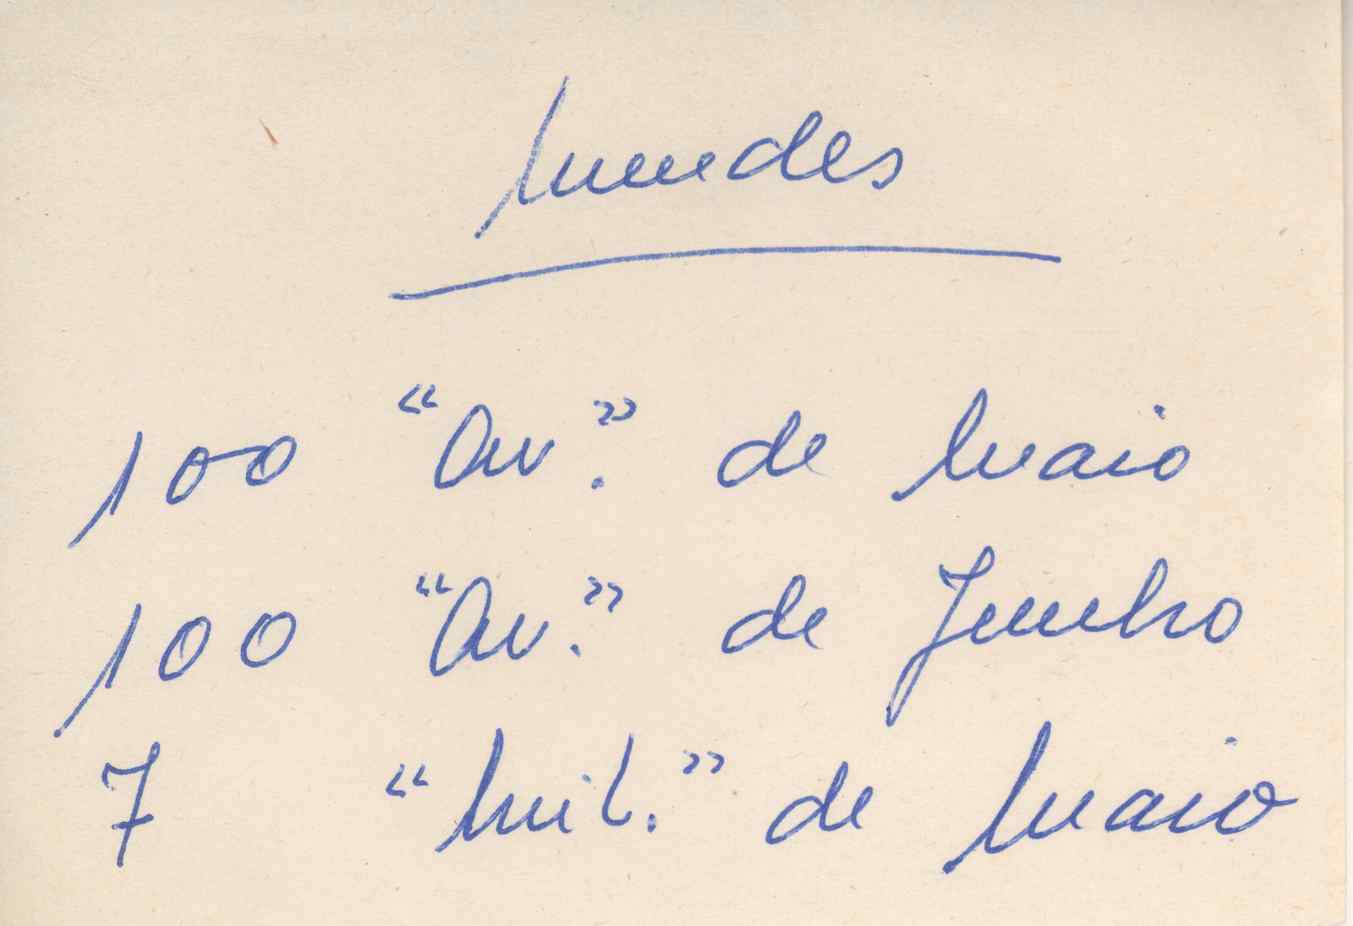 Mendes
100 "Av." de Maio
100 "Av." de Junho
7 "Mil." de Maio